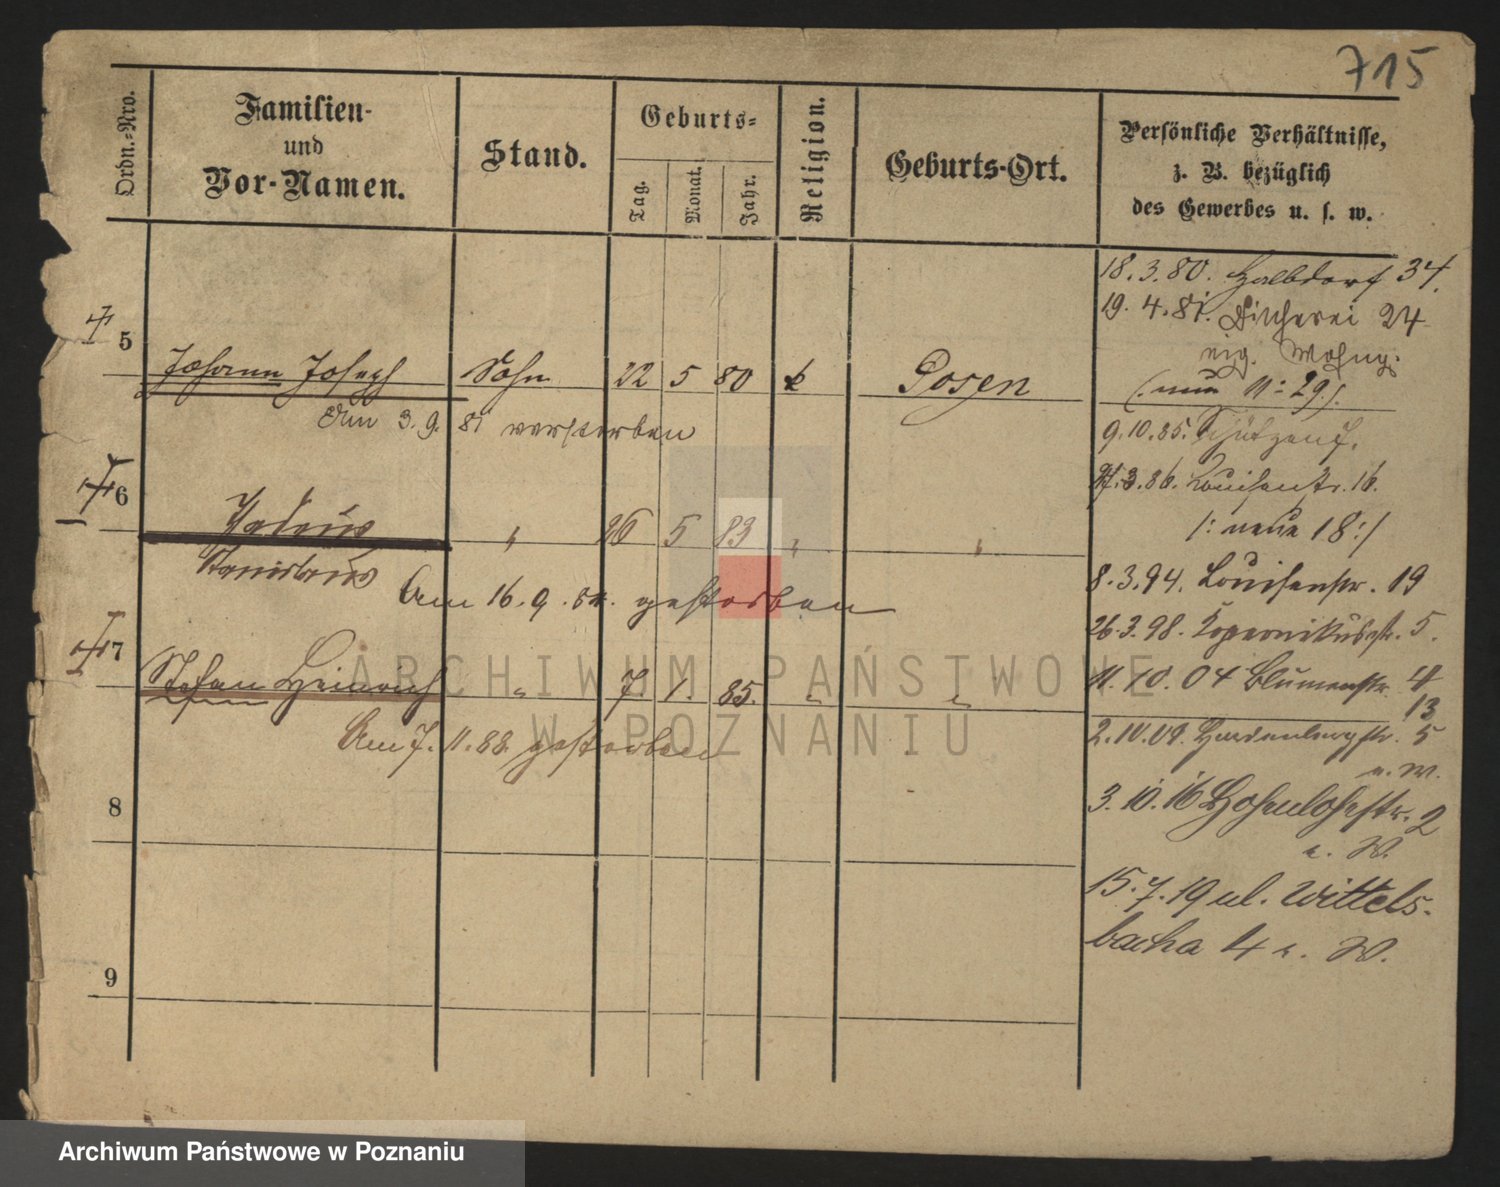 715
Ordn.-Nro.
Familien- und Vor-Namen.
Stand.
Geburts-
Tag.
Monat.
Jahr.
Religion.
Geburts-Ort.
Persönliche Verhältnisse,
z. B. bezüglich
des Gewerbes u. s. w.
18.3.80. Halbdorf 34.
19. 4. 81. Fischerei 24
eig. Wohng.
(: nun 11 = 29 :)
5 Johann Joseph Sohn 22 5 80 k Posen
Am 3. 9. 81 verstorben
9.10.85. Schützenstr.
3.86. Louisenstr. 16.
/: neue 18 :/
6 26 5 83
Stanislaus
Am 16. 9. 84. gestorben
8.3.94. Louisenstr. 19
26.3.98. Kopernikusstr. 5.
7 Stefan Heinrich " 7 1. 85. " "
Am 7. 11. 88. gestorben
11. 10. 04 Blumenstr. 4
13
2.10.09. Hardenbergstr. 5
u. W.
8
3. 10. 16 Hohenlohestr. 2
u. W.
15. 7. 19 ul. Wittels-
bacha 4 u. W.
9
ARCHIWUM PAŃSTWOWE
W POZNANIU
Archiwum Państwowe w Poznaniu